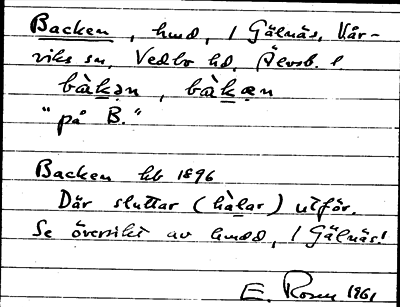 Backen, hmd, / Gälnäs, Vår-
viks sn, Vedbo hd, Älvsb. l
bàkən, bàkæn
"på B."
Backen hb 1896
Där sluttar (hàlar) utför.
Se översikt av hmdd, / Gälnäs!
E. Rosen 1961